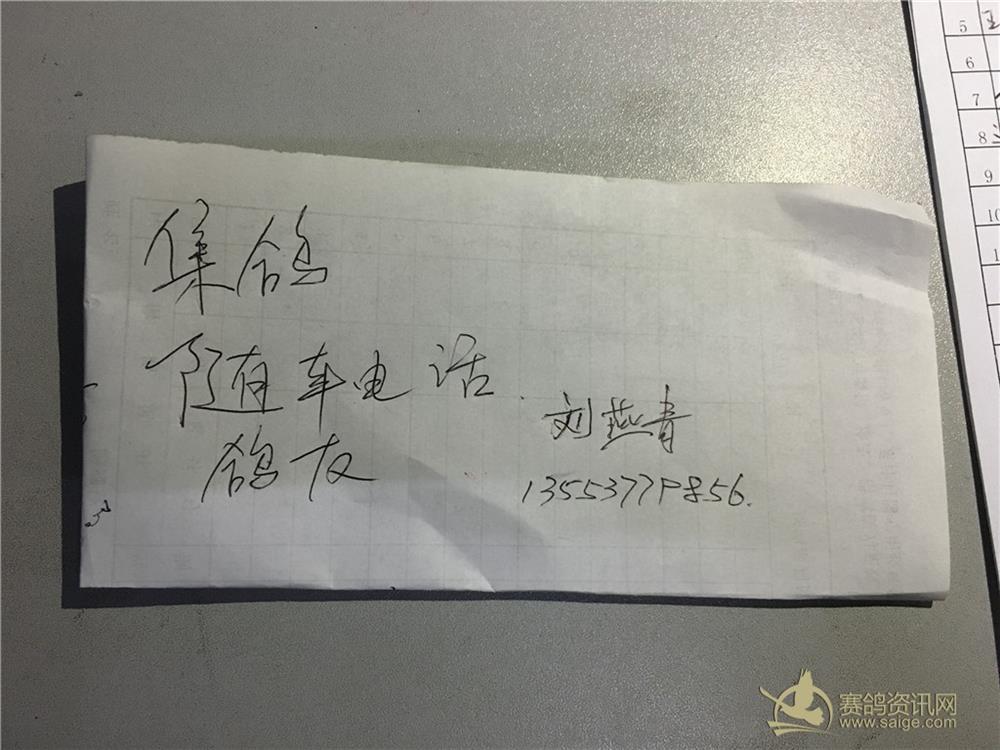 集鸽
随车电话
鸽友
刘燕青
13553779856.
5
6
7
8
9
10
赛鸽资讯网
www.saige.com